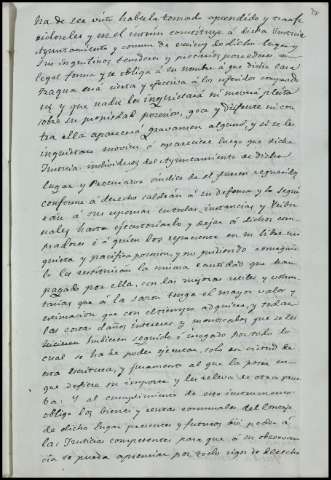 ha de ser visto haberla tomado aprendido y transf
ferídoseles y en el ínterin constituye á dicha Justicia
Ayuntamiento y comun de vecinos de dicho lugar y
sus inquilinos tenedores y precarios poseedores en
legal forma y se obliga á su nombre á que dicha casa
fragua será cierta y efectiva á los referidos comprado
res y que nadie los inquietará ni moverá pleito
sobre su propiedad posesion, goce y disfrute ni con
tra ella aparecerá gravamen alguno, y si se les
inquietare moviere ó apareciere luego que dicha
Justicia individuos del Ayuntamiento de dicho
lugar y Procurador síndico de él fueren requeridos
conforme á derecho saldrán á su defensa y lo segui
rán á sus espensas en todas instancias y tribu
nales hasta ejecutoriarlo y dejar á dichos com
pradores ó á quien los represente en su libre uso
quieta y pacífica posesion y no pudiendo conseguir
lo les restituirán la misma cantidad que han
pagado por ella, con las mejoras útiles y volun
tarias que á la sazon tenga el mayor valor y
estimacion que con el tiempo adquiera, y todas
las costas daños intereses y menoscabos que se les
hiciesen
cual se ha de poder ejecutar, solo en virtud de
esta escritura, y juramento al que la posea en
que defiere su importe y les releva de otra prue
ba: Y al cumplimiento de este instrumento
obliga los bienes y rentas comunales del Concejo
de dicho lugar presentes y futuros dá poder á
las Justicias competentes para que á su observan
cia se pueda apremiar por todo rigor de derecho